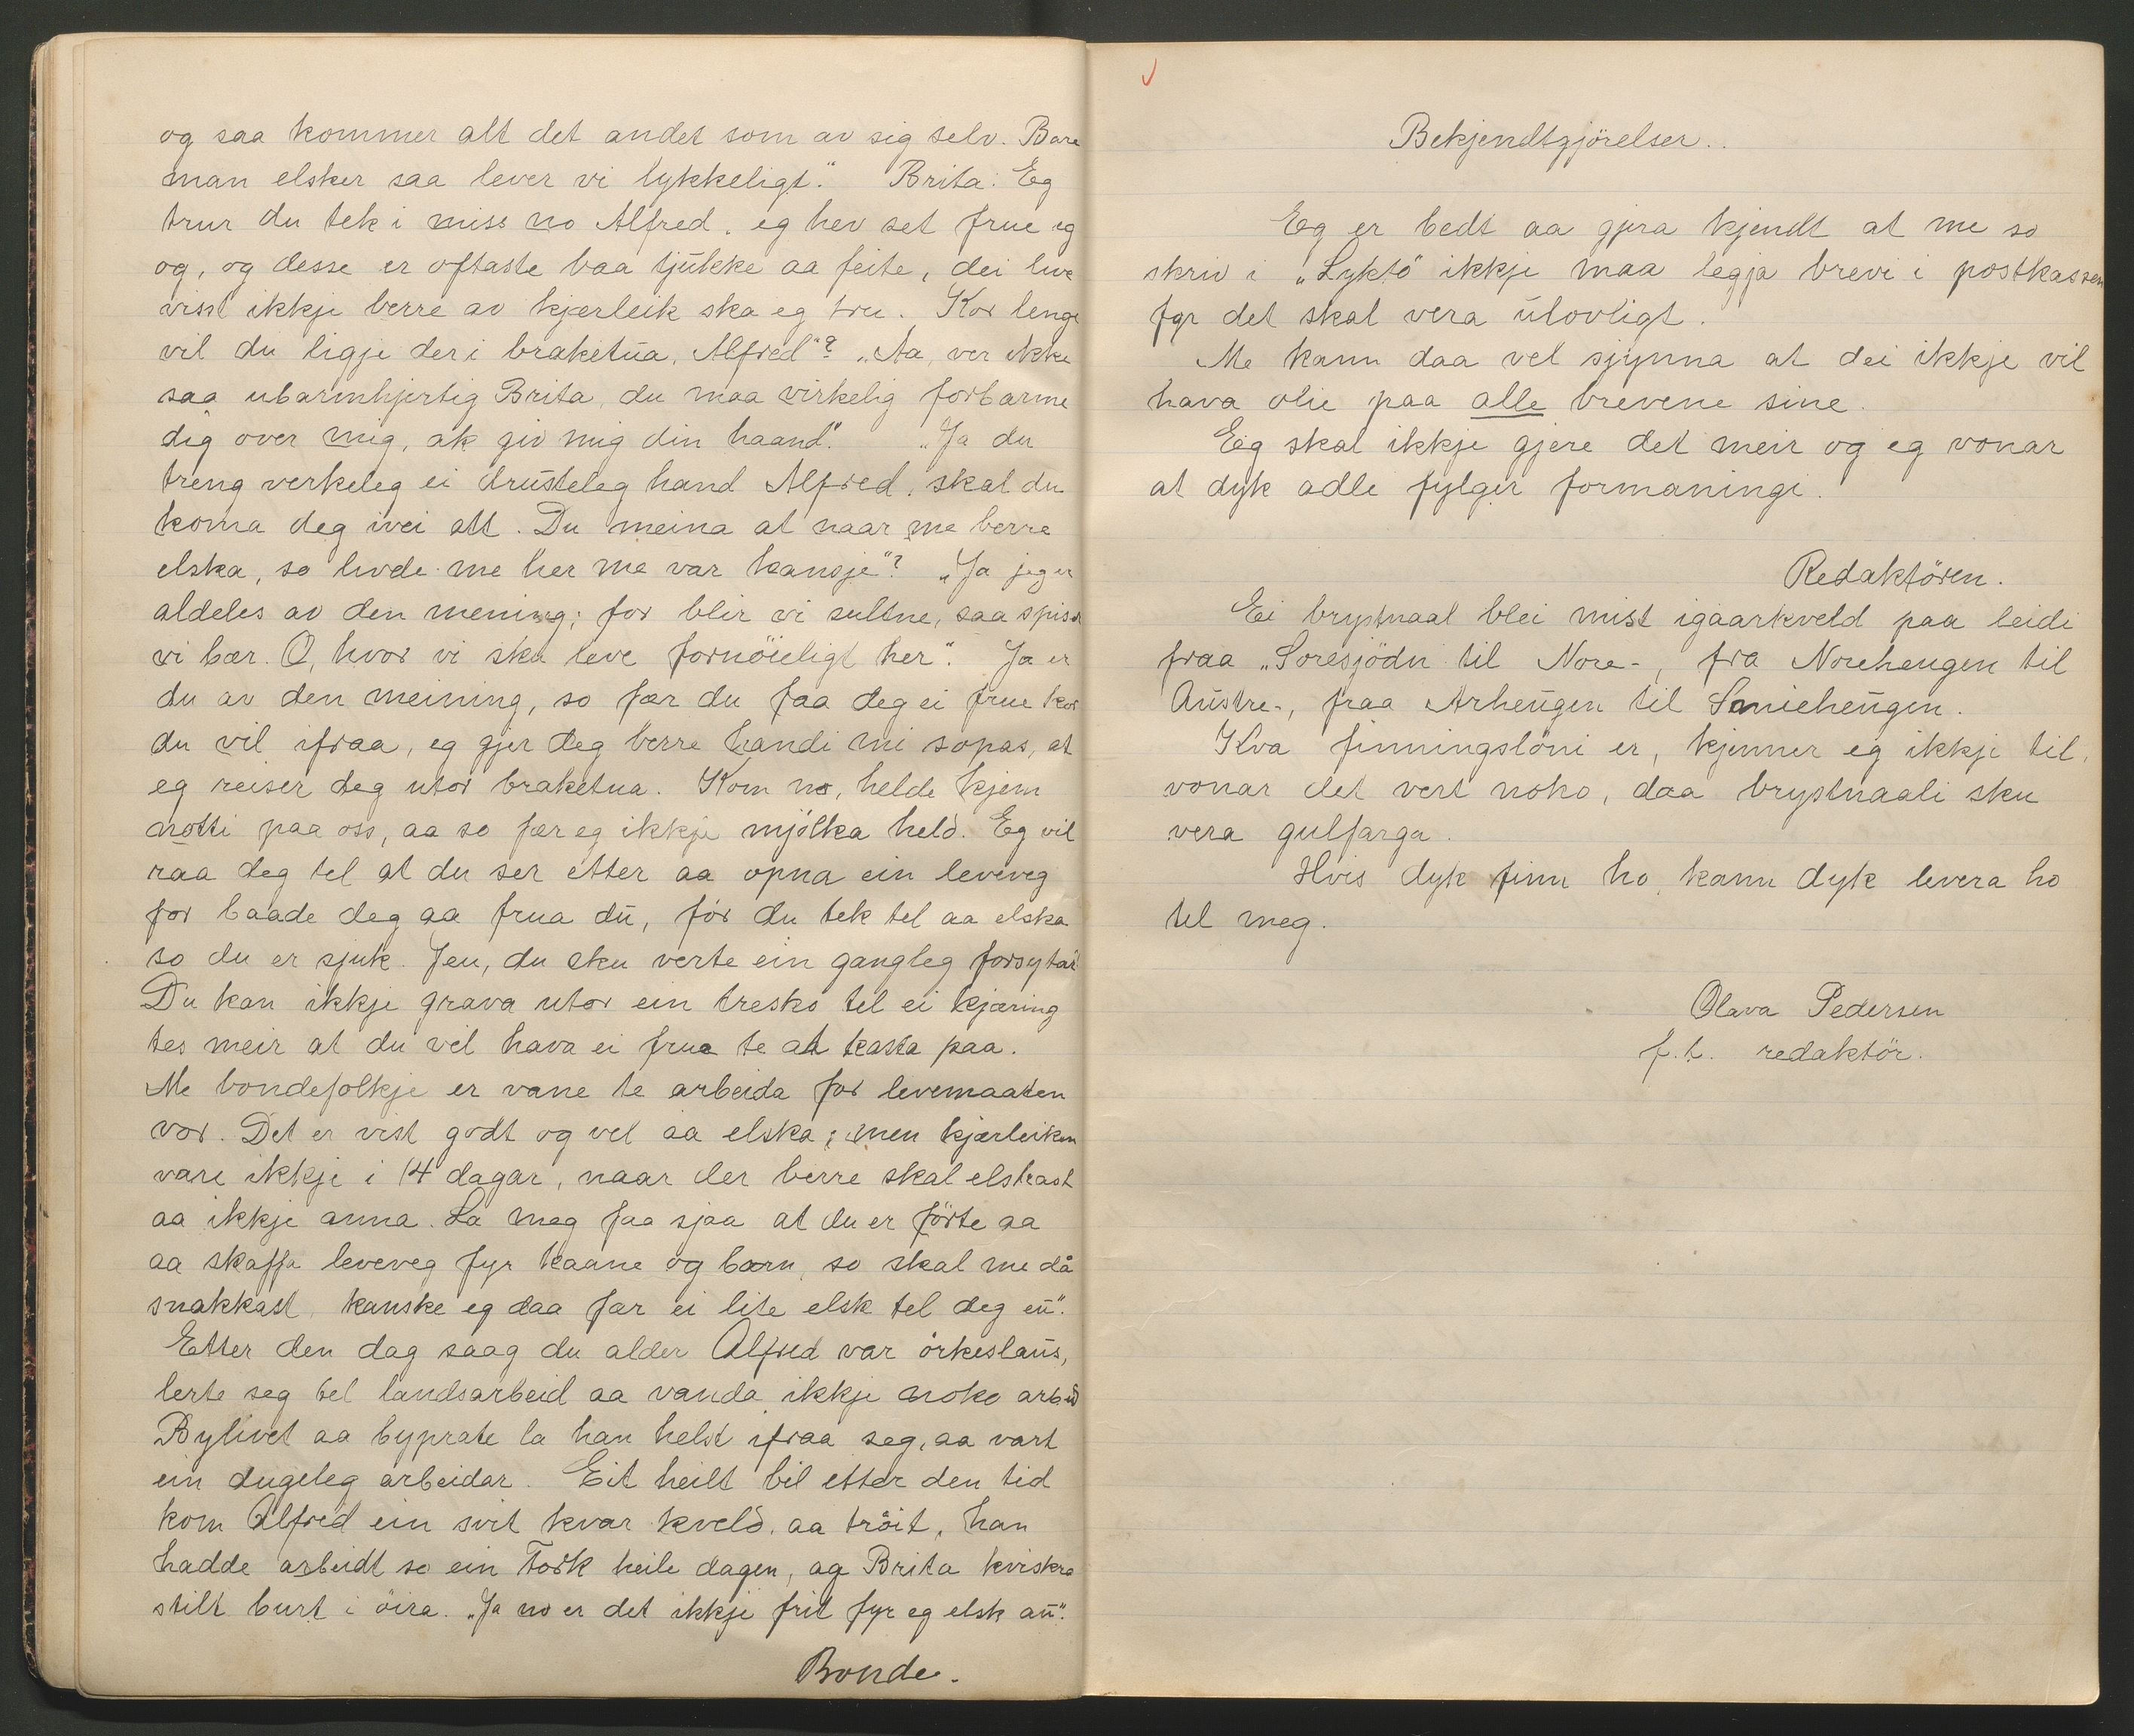 og saa kommer alt det andet som av sig selv. Bare
man elsker saa lever vi lykkeligt." Brita: Eg
trur du tek i miss no Alfred. eg hev set frue eg
og, og desse er oftaste baa tjukke aa feite, dei live
visst ikkje berre av kjærleik ska eg tru. Kor lenge
vil du ligje der i braketua, Alfred"? "Aa, ver ikke
saa ubarmhjertig Brita, du maa virkelig forbarme
dig over mig, ak giv mig din haand". "Ja du
treng verkeleg ei drusteleg hand Alfred, skal du
koma deg ivei att. Du meina at naar me berre
elska, so livde me her me var kansje"? "Ja jeg er
aldeles av den mening; for blir vi sultne, saa spiser
vi bær. O, hvor vi ska leve fornöieligt her". Ja er
du av den meining, so fær du faa deg ei frue kor
du vil ifraa, eg gjer deg berre handi mi sopas, at
eg reiser deg utor braketua. Kom no, helde kjem
notti paa oss, aa so fær eg ikkje mjölka held. Eg vil
raa deg tel at du ser etter aa opna ein leveveg
for baade deg aa frua di, för du tek tel aa elska
so du er sjuk. Jeu, du sku verte ein gangleg forsytar
Du kan ikkje grava utor ein tresko til ei kjæring
tes meir at du vil hava ei frue te at kasta paa.
Me bondefolkje er vane te arbeida for levemaaten
vor. Det er vist godt og vel aa elska; men kjærleiken
vare ikkje i 14 dagar, naar der berre skal elskast
aa ikkje anna. La meg faa sjaa at du er förte aa
aa skaffa leveveg fyr kaane og barn, so skal me då
snakkast, kanske eg daa fær ei lite elsk tel deg eu".
Etter den dag saag du alder Alfred var örkeslaus,
lerte seg tel landsarbeid aa vanda ikkje noko arbeid
Bylivet aa byprate la han helst ifraa seg, aa vart
ein dugeleg arbeidar. Eit heilt bil etter den tid
kom Alfred ein svit kvar kveld, aa tröit, han
hadde arbeidt so ein Tork heile dagen, og Brita kviskra
stilt burt i öira. "Ja no er det ikkje frit fyr eg elsk au".
Bonde.
Bekjendtgjörelser..
Eg er bedt aa gjera kjendt at me so
skriv i "Lyktö" ikkje maa legja brevi i postkassen
fyr det skal vera ulovligt.
Me kann daa vel sjynna at dei ikkje vil
hava olie paa alle brevene sine.
Eg skal ikkje gjere det meir og eg vonar
at dyk adle fylger formaningi.
Redaktören.
Ei brystnaal blei mist igaarkveld paa leidi
fraa "Soresjödn til Nore-, fra Norehengen til
Austre-, fraa Arheugen til Smieheugen.
Kva finningslöni er, kjenner eg ikkje til,
vonar det vert noko, daa brystnaali sku
vera gulfarga.
Hvis dyk finn ho, kann dyk levera ho
tel meg.
Olava Pedersen
f.t. redaktör.